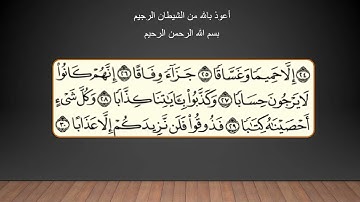 أعوذ بالله من الشيطان الرجيم
بسم الله الرحمن الرحيم
٢٤ إِلَّا حَمِيمًا وَغَسَّاقًا ٢٥ جَزَآءً وِفَاقًا ٢٦ إِنَّهُمْ كَانُوا۟
لَا يَرْجُونَ حِسَابًا ٢٧ وَكَذَّبُوا۟ بِـَٔايَٰتِنَا كِذَّابًا ٢٨ وَكُلَّ شَىْءٍ
أَحْصَيْنَٰهُ كِتَٰبًا ٢٩ فَذُوقُوا۟ فَلَن نَّزِيدَكُمْ إِلَّا عَذَابًا ٣٠